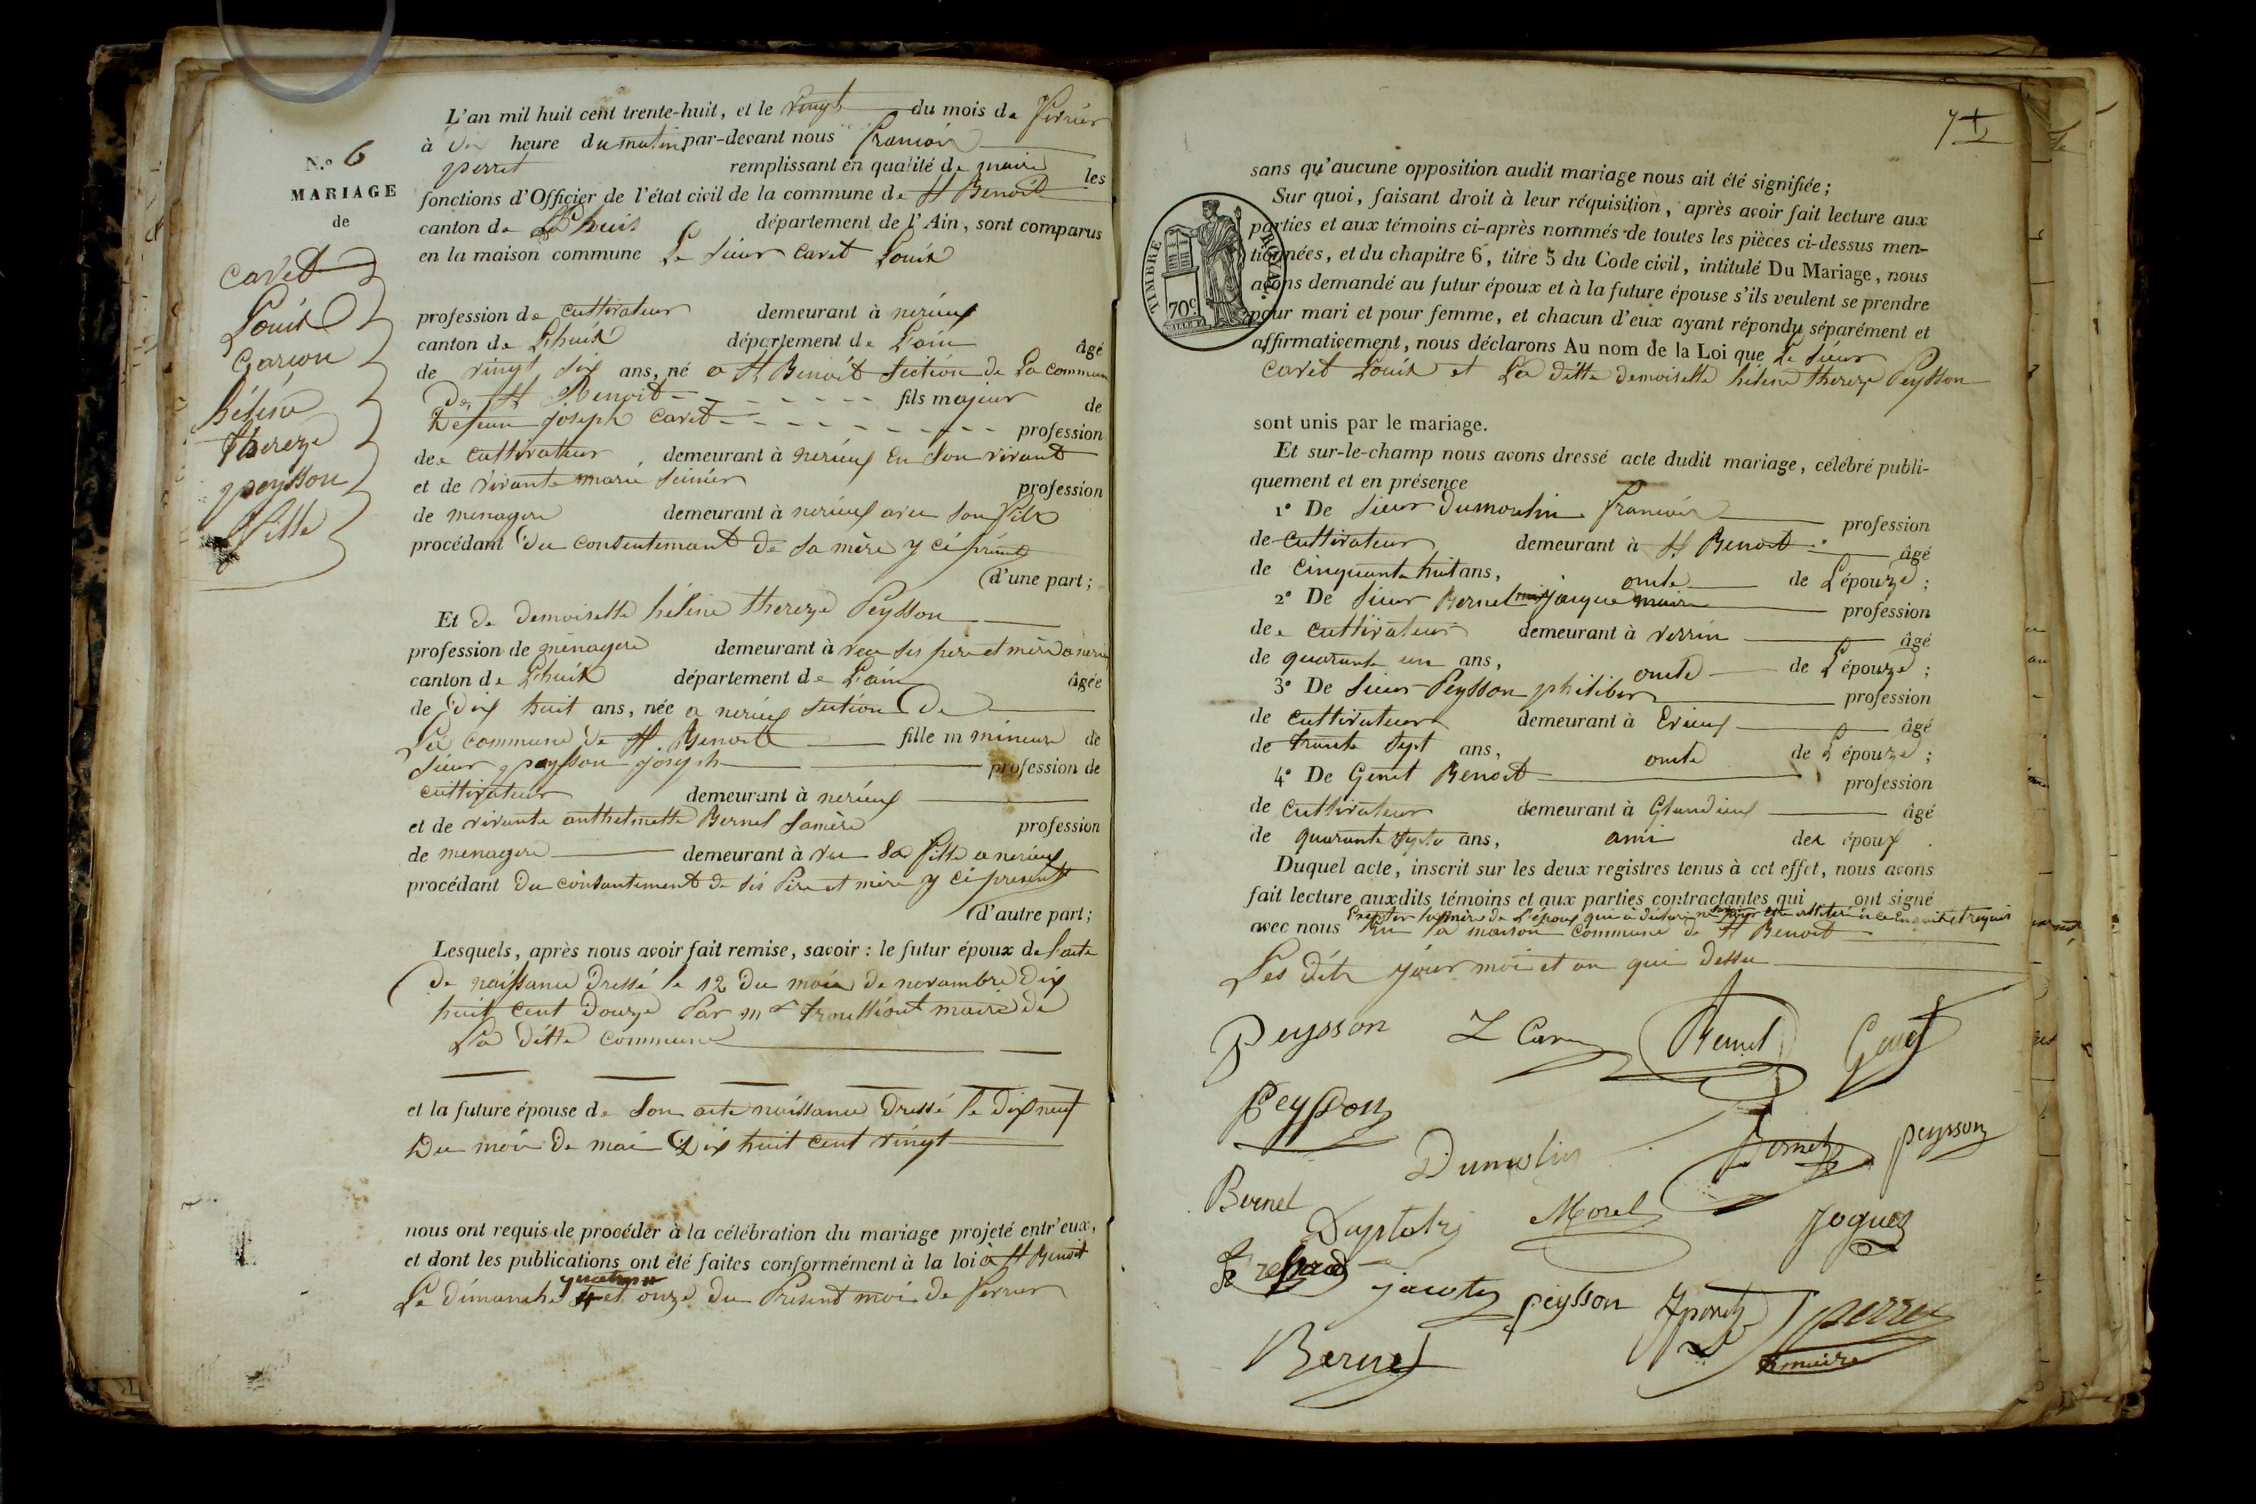 L'an mil huit cent trente-huit, et le vingt du mois de fevrier
à dix heure du matin par-devant nous francois
perret remplissant en qualité de maire les
fonctions d'Officier de l'état civil de la commune de St Benoit
canton de Lhuis département de l'Ain, sont comparus
en la maison commune Le sieur caret Louis
N.o 6
MARIAGE
de
caret
Louis
Garcon
hélène
thereze
peysson
fille
profession de cultivateur demeurant à nérieux
canton de Lhuis département de L'ain âgé
de vingt six ans, né a St Benoit section de La commune
De St Benoit fils majeur de
De jean joseph caret profession
de cultivateur demeurant à nérieux en son vivant
et de vivante marie profession
de menagere demeurant à nerieux avec son fils
procédant du consentemant de sa mère y ci présente
d'une part;
Et de demoiselle hélène thereze Peysson
profession de ménagere demeurant à vec ses père et mère a nerieux
canton de Lhuis département de L'ain âgée
de dix huit ans, née a nerieux section De
La commune de St. Benoit fille m mineure de
sieur peysson joseph profession de
cultivateur demeurant à nerieux
et de vivante anthelmette Bernel sa mère profession
de menagere demeurant à vec sa fille a nerieux
procédant du consantement de ses père et mère y ci presents
d'autre part;
Lesquels, après nous avoir fait remise, savoir : le futur époux de l'acte
de naissance dressé le 12 du mois de novambre dix
huit cent douze Par mr trouilliout maire de
La ditte commune
et la future épouse de son acte naissance dressé le dix neuf
Du mois de mai dix huit cent vingt
nous ont requis de procéder à la célébration du mariage projeté entr'eux,
et dont les publications ont été faites conformément à la loi à St Benoit
Le dimanche quatre et onze du Présent mois de fevrier
7
sans qu'aucune opposition audit mariage nous ait été signifiée;
Sur quoi, faisant droit à leur réquisition, après avoir fait lecture aux
parties et aux témoins ci-après nommés de toutes les pièces ci-dessus men-
tionnées, et du chapitre 6, titre 5 du Code civil, intitulé Du Mariage, nous
avons demandé au futur époux et à la future épouse s'ils veulent se prendre
pour mari et pour femme, et chacun d'eux ayant répondu séparément et
affirmativement, nous déclarons Au nom de la Loi que Le sieur
caret Louis et La ditte demoiselle hélène thereze Peysson
TIMBRE ROYAL.
70c.
sont unis par le mariage.
Et sur-le-champ nous avons dressé acte dudit mariage, célébré publi-
quement et en présence
1o De sieur Dumoulin francois profession
de cultivateur demeurant à St Benoit âgé
de cinquante huit ans, oncle de L'épouze;
2o De sieur Bernel jacque maire profession
de cultivateur demeurant à verrin âgé
de quarante un ans, oncle de L'épouze;
3o De sieur Peysson philiber profession
de cultivateur demeurant à Evieux âgé
de trante sept ans, oncle de L'épouze;
4o De Genet Benoit profession
de cultivateur demeurant à Glandieux âgé
de quarante septe ans, ami des époux.
Duquel acte, inscrit sur les deux registres tenus à cet effet, nous avons
fait lecture auxdits témoins et aux parties contractantes qui ont signé
Excepter la mère de L'époux qui à déclaré ne savoir de ce enquit et requis
avec nous En la maison commune de St Benoit
Les dits jour mois et an que dessu
Peysson L Caret Bernel Genet
Peysson
Dumolin Bernel peysson
Bernel
Morel Joguet
jacotez peysson perret
maire
Bernel